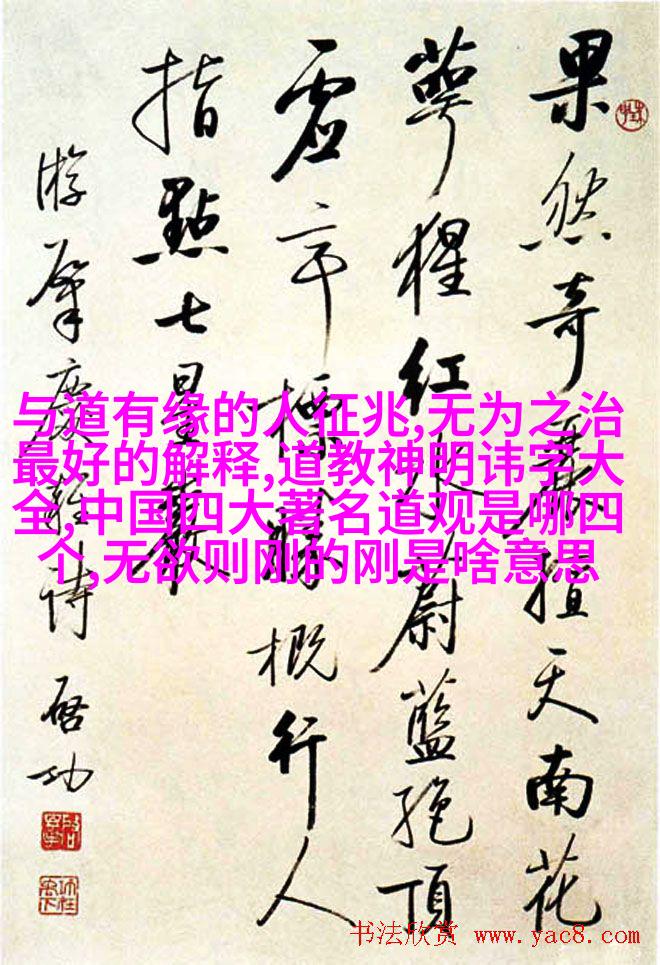 果然奇麗擅天南花
萼猩红水蔚藍絶頂
虚亭標勝概行人
指點七星巖
游肇慶雜詩 啓功
与道有缘的人征兆,无为之治
最好的解释,道教神明讳字大
全,中国四大著名道观是哪四
个,无欲则刚的刚是啥意思
书法欣赏 www.yac8.com